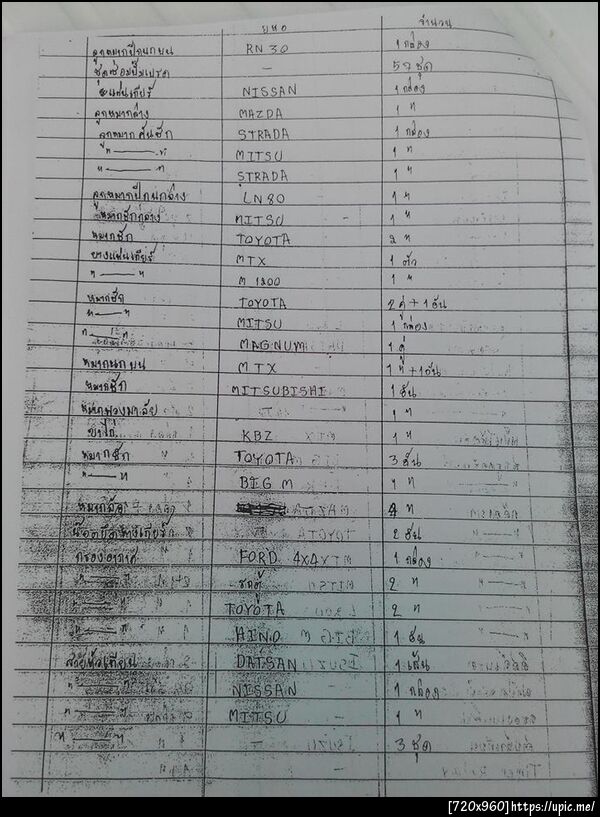 ยี่ห้อ จำนวน
ลูกหมากปีกนกบน RN 30 1 กล่อง
ชุดซ่อมปั๊มเบรค - 57 ชุด
แท่นเกียร์ NISSAN 1 กล่อง
ลูกหมากล่าง MAZDA 1 "
ลูกหมากคันชัก STRADA 1 กล่อง
" — " MITSU 1 "
STRADA 1 "
ลูกหมากปีกนกล่าง LN80 1 "
MITSU 1 "
หมากชัก TOYOTA 2 "
ยางแท่นเกียร์ MTX 1 ตัว
" — " M 1200 1 "
หมากชัก TOYOTA 2 คู่ + 1 อัน
" — " MITSU 1 กล่อง
" — " MAGNUM 1 คู่
หมากนกบน MTX 1 คู่ + 1 อัน
หมากชัก MITSUBISHI 1 อัน
1 "
ขาไก่ KBZ 1 "
หมากชัก TOYOTA 3 อัน
" — " BIG M 1 "
4 "
2 อัน
กรองอากาศ FORD 4X4 1 กล่อง
" — " รถตู้ 2 "
" — " TOYOTA 2 "
" — " HINO 1 อัน
สายหัวเทียน DATSAN 1 เส้น
" — " NISSAN 1 กล่อง
" — " MITSU 1 "
" — " - 3 ชุด
[720x960]https://upic.me/